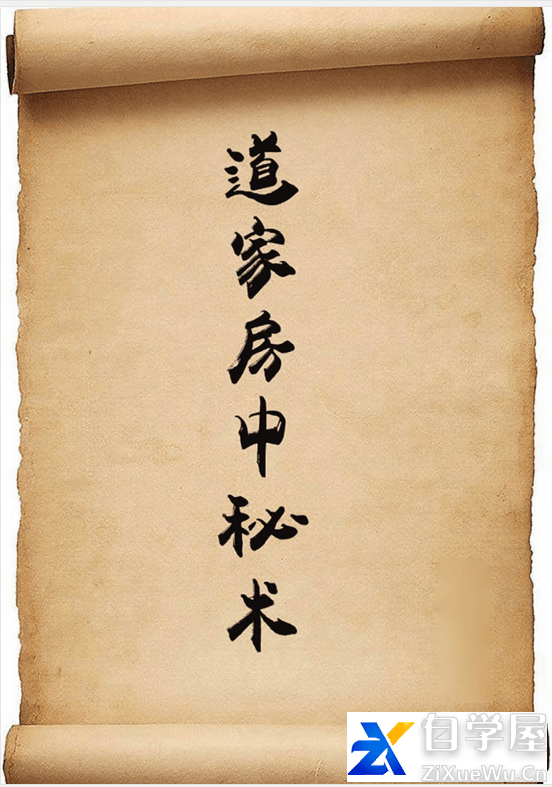 道家房中秘术
自学屋
ZiXueWu.Cn